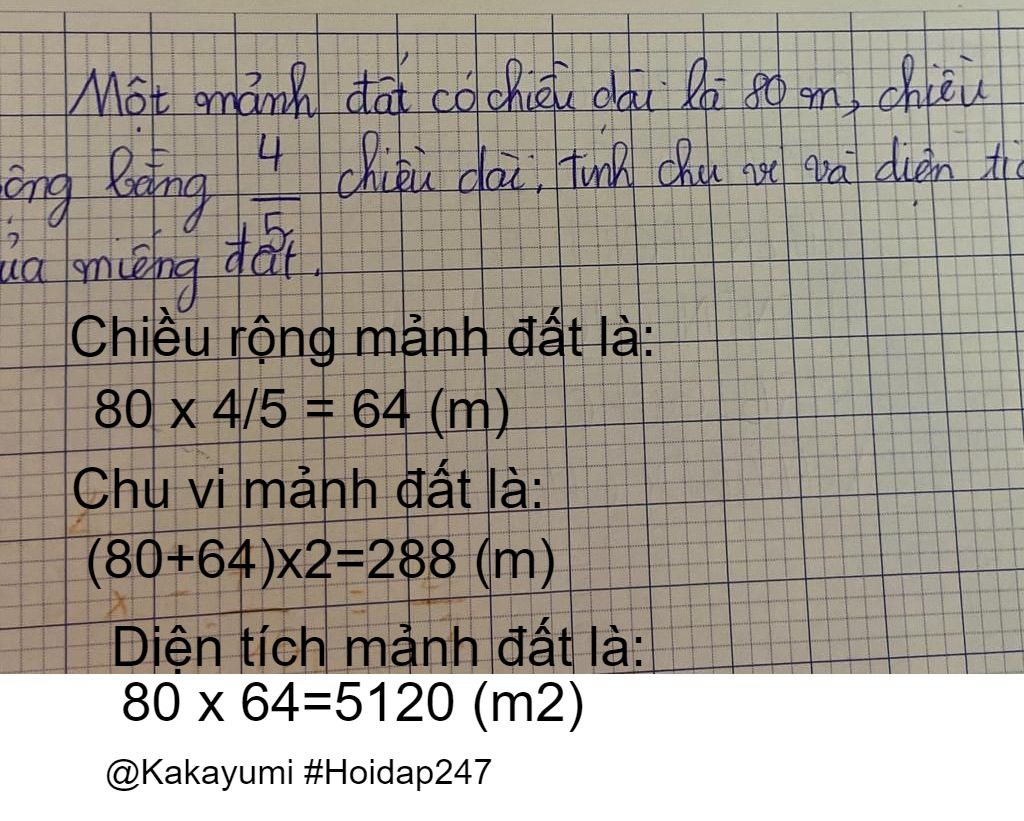 Một mảnh đất có chiều dài là 80 m, chiều
ộng bằng 4/5 chiều dài, tính chu vi và diện tíc
ủa miếng đất.
Chiều rộng mảnh đất là:
80 x 4/5 = 64 (m)
Chu vi mảnh đất là:
(80+64)x2=288 (m)
Diện tích mảnh đất là:
80 x 64=5120 (m2)
@Kakayumi #Hoidap247